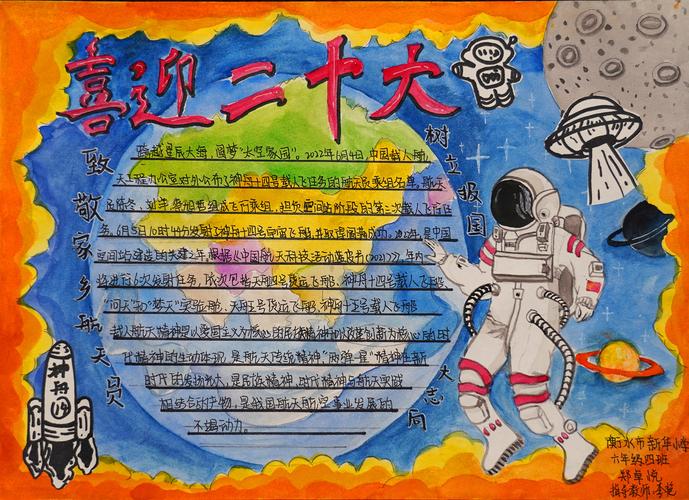 喜迎二十大
致敬家乡航天员
树立报国大志向
跨越星辰大海,圆梦“太空家园”。2022年6月4日,中国载人航
天工程办公室对外公布了神舟十四号载人飞行任务的航天员乘组名单,航天
员陈冬、刘洋、蔡旭哲组成飞行乘组,担负空间站阶段的第二次载人飞行任
务。6月5日10时44分发射了神舟十四号载人飞船,并取得圆满成功。2022年,是中国
空间站建造的关键之年,根据《中国航天科技活动蓝皮书(2021)》,年内
将进行6次发射任务,依次包括天舟四号货运飞船、神舟十四号载人飞船、
“问天”和“梦天”实验舱、天舟五号货运飞船、神舟十五号载人飞船
载人航天精神是以爱国主义为核心的民族精神和以改革创新为核心的时
代精神的生动体现,是航天传统精神、“两弹一星”精神在新
时代的发扬光大,是民族精神、时代精神与航天实践
相结合的产物,是我国航天航空事业发展的
不竭动力。
神舟
衡水市新华小学
六年级四班
郑卓悦
指导教师:李